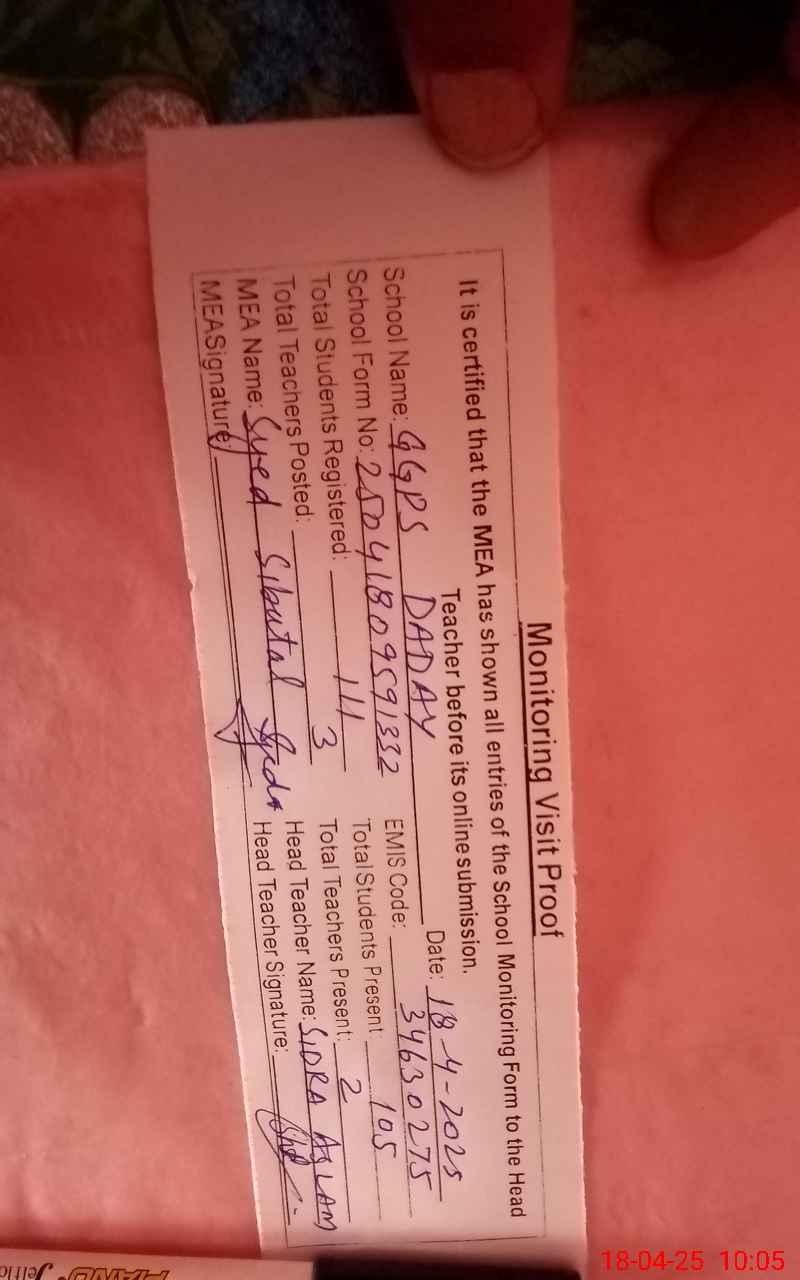 Monitoring Visit Proof
It is certified that the MEA has shown all entries of the School Monitoring Form to the Head
Teacher before its online submission.
Date: 18-4-2025
School Name: GGPS DADAY EMIS Code: 34630275
School Form No: 25041809591332 Total Students Present 105
Total Students Registered: 111 Total Teachers Present: 2
Total Teachers Posted: 3 Head Teacher Name: SIDRA ASLAM
MEA Name: Syed Head Teacher Signature:
MEA Signature:
PIANO
18-04-25 10:05